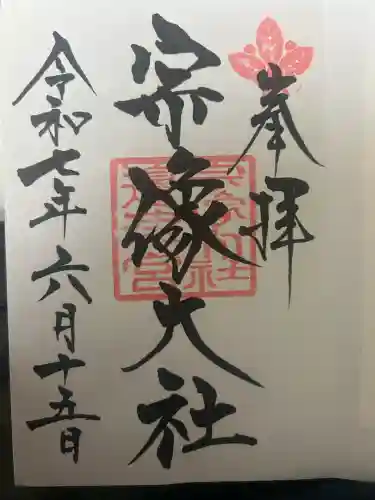 奉拝
宗像大社
令和七年六月十五日